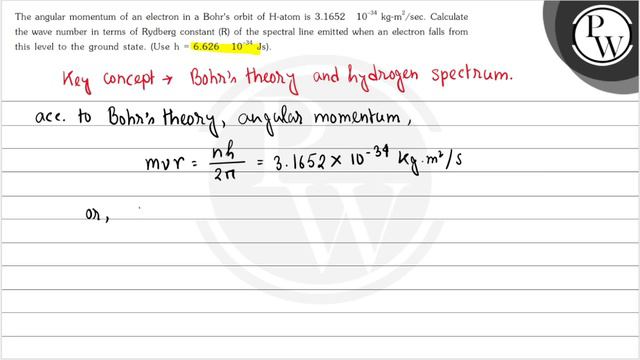 The angular momentum of an electron in a Bohr's orbit of H-atom is 3.1652 10⁻³⁴ kg-m²/sec. Calculate
the wave number in terms of Rydberg constant (R) of the spectral line emitted when an electron falls from
this level to the ground state. (Use h = 6.626 10⁻³⁴ Js).
Key concept → Bohr's theory and hydrogen spectrum.
acc. to Bohr's theory, angular momentum,
mvr = nh/2π = 3.1652 × 10⁻³⁴ Kg.m²/s
or,
PW
PW